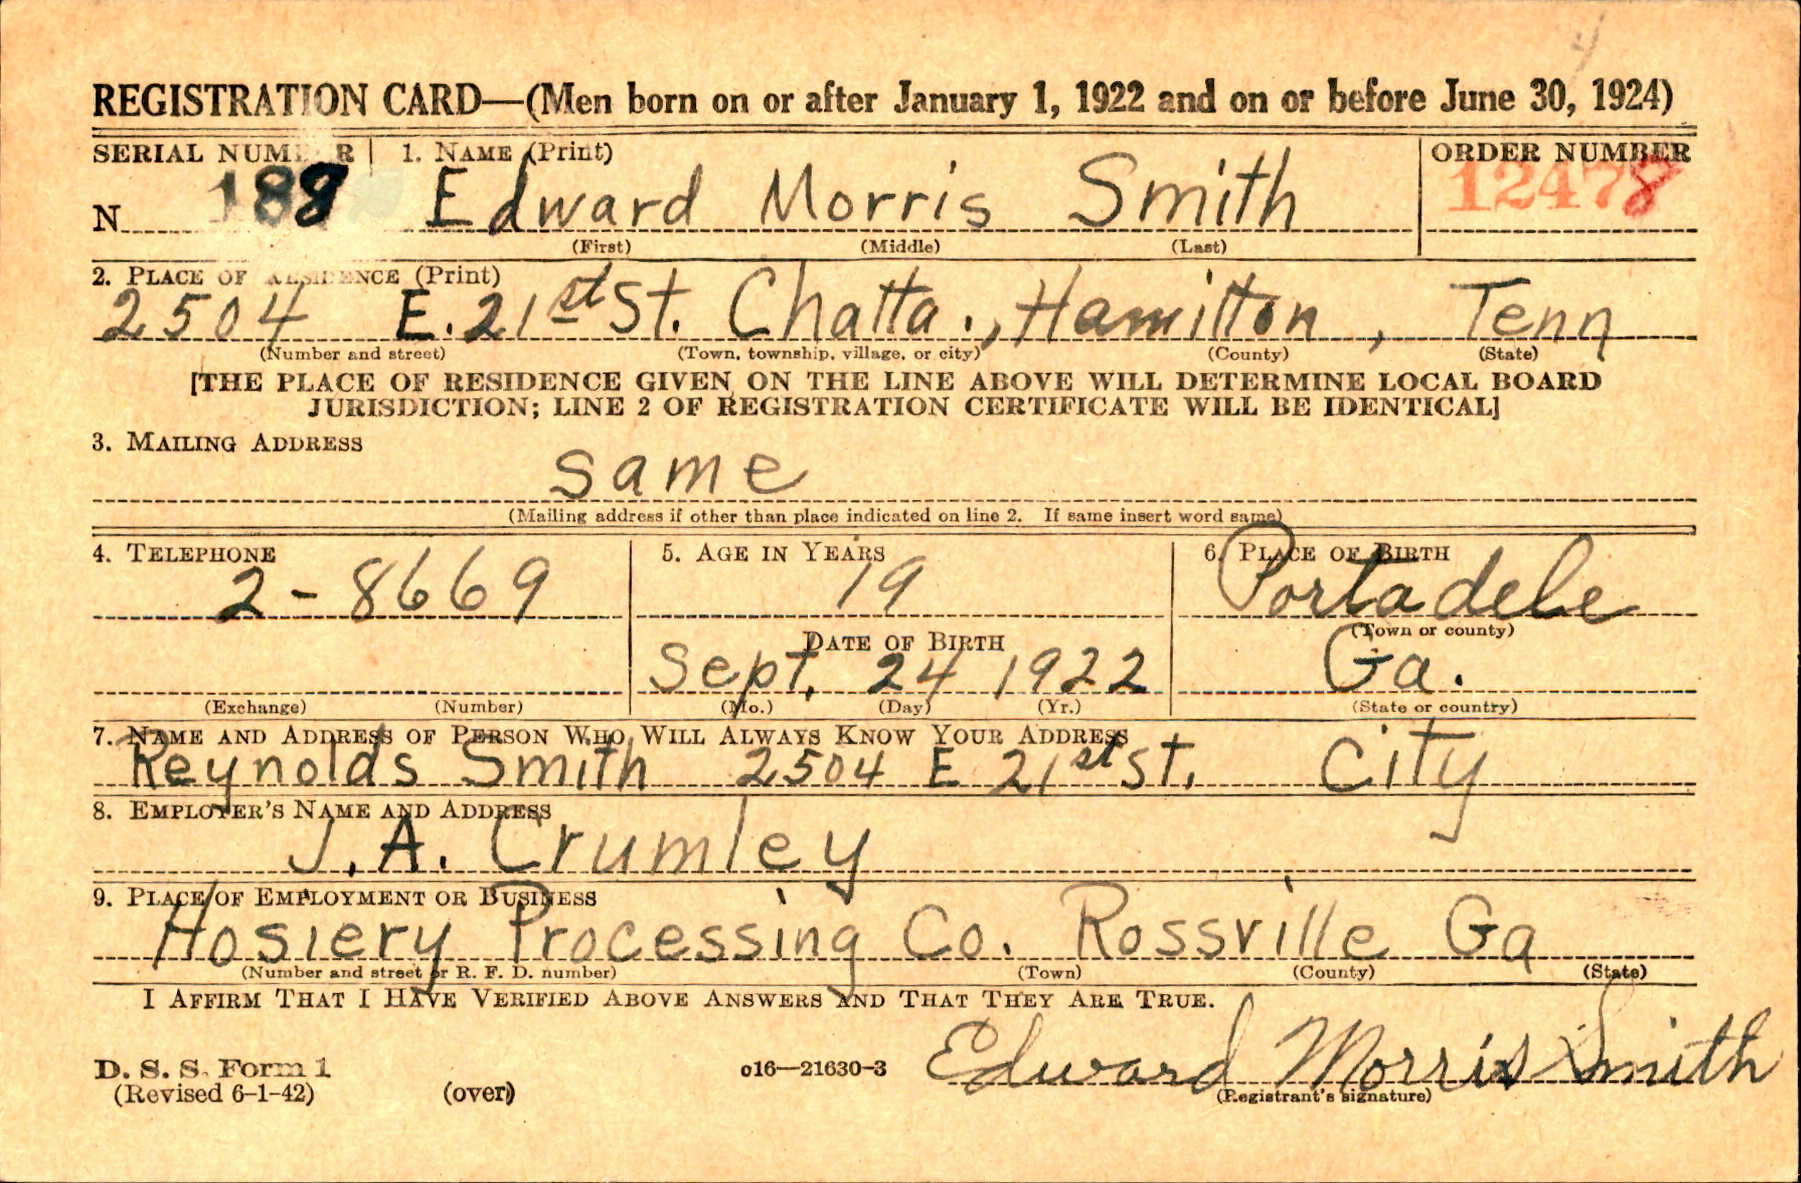 REGISTRATION CARD—(Men born on or after January 1, 1922 and on or before June 30, 1924)
SERIAL NUMBER 1. NAME (Print) ORDER NUMBER
N 188 Edward Morris Smith 12478
(First) (Middle) (Last)
2. PLACE OF RESIDENCE (Print)
2504 E. 21st St. Chatta., Hamilton, Tenn
(Number and street) (Town, township, village, or city) (County) (State)
[THE PLACE OF RESIDENCE GIVEN ON THE LINE ABOVE WILL DETERMINE LOCAL BOARD
JURISDICTION; LINE 2 OF REGISTRATION CERTIFICATE WILL BE IDENTICAL]
3. MAILING ADDRESS
same
(Mailing address if other than place indicated on line 2. If same insert word same)
4. TELEPHONE 5. AGE IN YEARS 6. PLACE OF BIRTH
2-8669 19 Portadele
(Town or county)
DATE OF BIRTH
Sept. 24 1922 Ga.
(Exchange) (Number) (Mo.) (Day) (Yr.) (State or country)
7. NAME AND ADDRESS OF PERSON WHO WILL ALWAYS KNOW YOUR ADDRESS
Reynolds Smith 2504 E 21st St. City
8. EMPLOYER'S NAME AND ADDRESS
J. A. Crumley
9. PLACE OF EMPLOYMENT OR BUSINESS
Hosiery Processing Co. Rossville Ga
(Number and street or R. F. D. number) (Town) (County) (State)
I AFFIRM THAT I HAVE VERIFIED ABOVE ANSWERS AND THAT THEY ARE TRUE.
D. S. S. Form 1 c16—21630-3 Edward Morris Smith
(Revised 6-1-42) (over) (Registrant's signature)